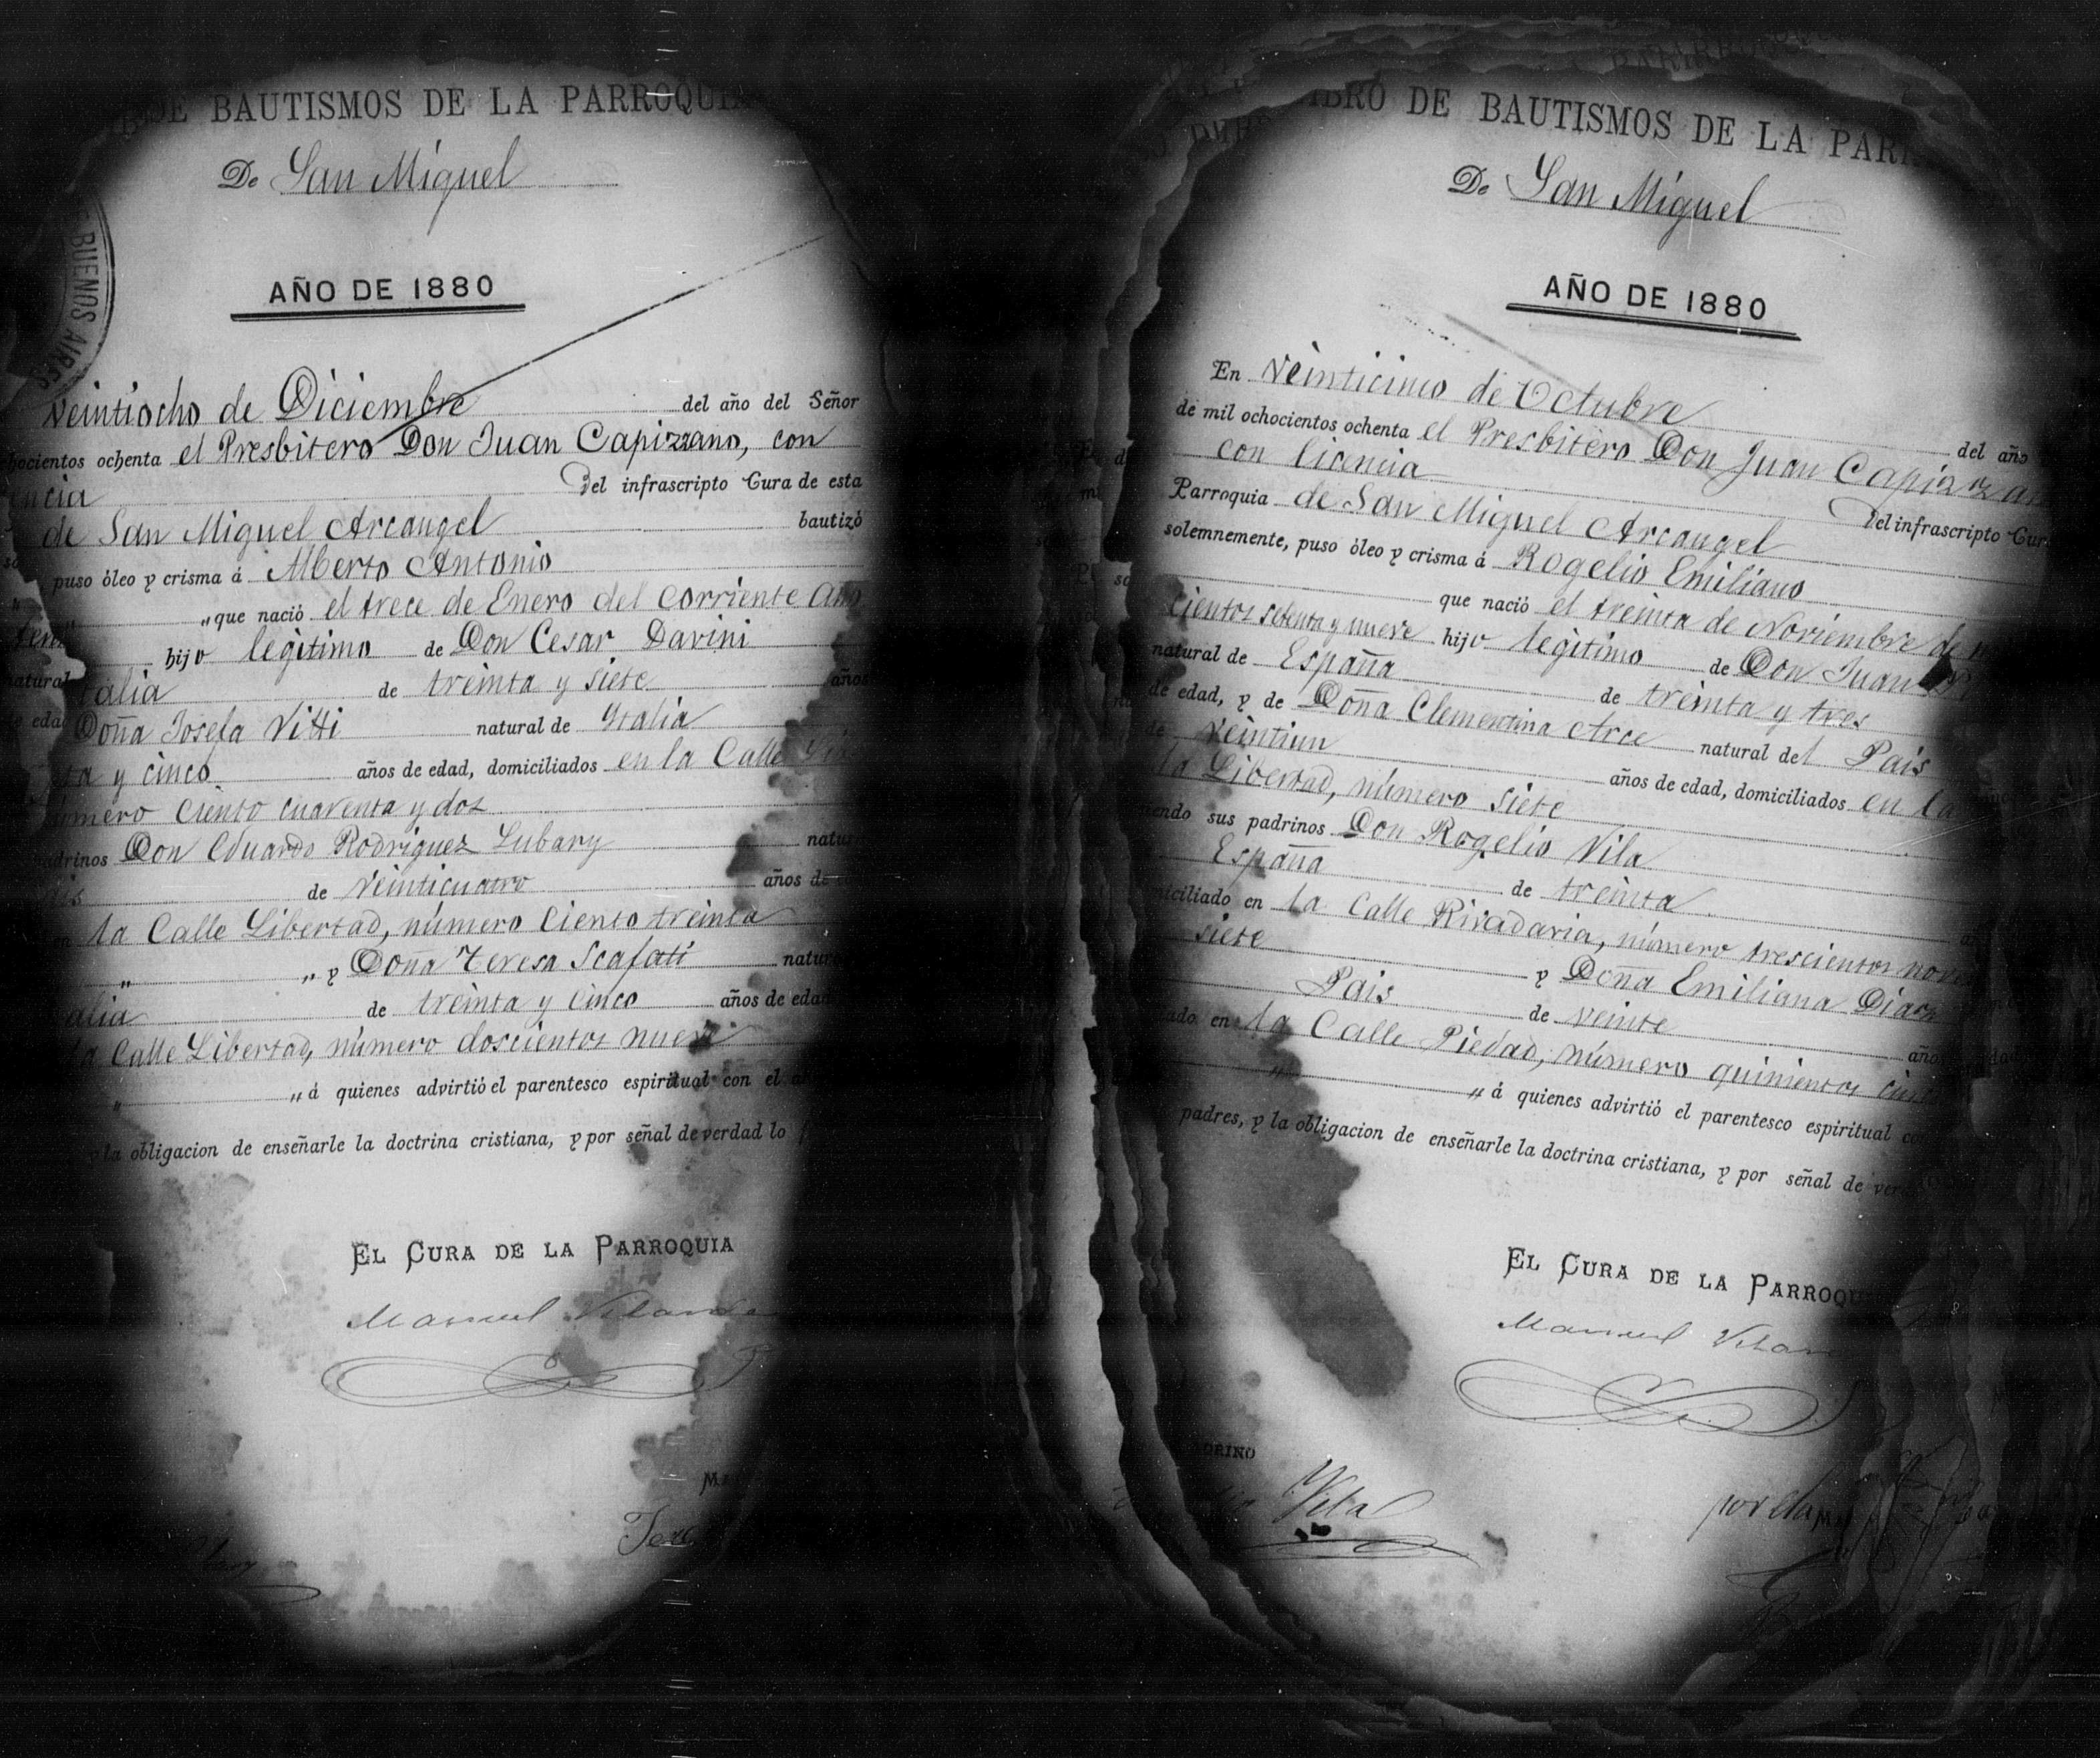 DE BAUTISMOS DE LA PARROQUIA
De San Miguel
BUENOS AIRES
AÑO DE 1880
Veintiocho de Diciembre del año del Señor
hocientos ochenta el Presbitero Don Juan Capizzano, con
encia Del infrascripto Cura de esta
de San Miguel Arcangel bautizó
puso óleo y crisma á Alberto Antonio
„ que nació el trece de Enero del corriente año
hijo legitimo de Don Cesar Davini
natural talia de treinta y siete años
de edad Doña Josefa Vitti natural de Ytalia
ta y cinco años de edad, domiciliados en la Calle
número ciento cuarenta y dos
padrinos Don Eduardo Rodriguez Lubary natu
is de veinticuatro años de
en la Calle Libertad, número ciento treinta
„ „ y Doña Teresa Scafati natu
alia de treinta y cinco años de edad
la Calle Libertad, número doscientos nueve
„ „ á quienes advirtió el parentesco espiritual con el
y la obligacion de enseñarle la doctrina cristiana, y por señal de verdad lo
EL CURA DE LA PARROQUIA
Manuel Velarde
MA
Tere
LIBRO DE BAUTISMOS DE LA PARR
De San Miguel
AÑO DE 1880
En Veinticinco de Octubre del año
de mil ochocientos ochenta el Presbitero Don Juan Capizzan
con licencia Del infrascripto Cur
Parroquia de San Miguel Arcangel
solemnemente, puso óleo y crisma á Rogelio Emiliano
que nació el treinta de Noviembre de m
cientos setenta y nueve hijo legitimo de Don Juan
natural de España de treinta y tres
de edad, y de Doña Clementina Arce natural del Pais
de veintiun años de edad, domiciliados en la
la Libertad, número siete
endo sus padrinos Don Rogelio Vila
España de treinta
miciliado en la Calle Rivadavia, número trescientos nove
siete y Doña Emiliana Diaz
Pais de veinte año
ado en la Calle Piedad, número quinientos cin
„ „ á quienes advirtió el parentesco espiritual co
padres, y la obligacion de enseñarle la doctrina cristiana, y por señal de ver
EL CURA DE LA PARROQU
Manuel Velar
DRINO
Vila
por ella